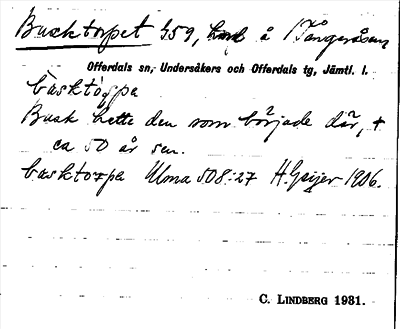 Busktorpet 959, å Tångeråsen
Offerdals sn, Undersåkers och Offerdals tg, Jämtl. l.
bàsktòrpa
Busk hette den som började där, +
ca 50 år sen.
basktorpa Ulma 508:27 H. Geijer 1906.
C. LINDBERG 1931.